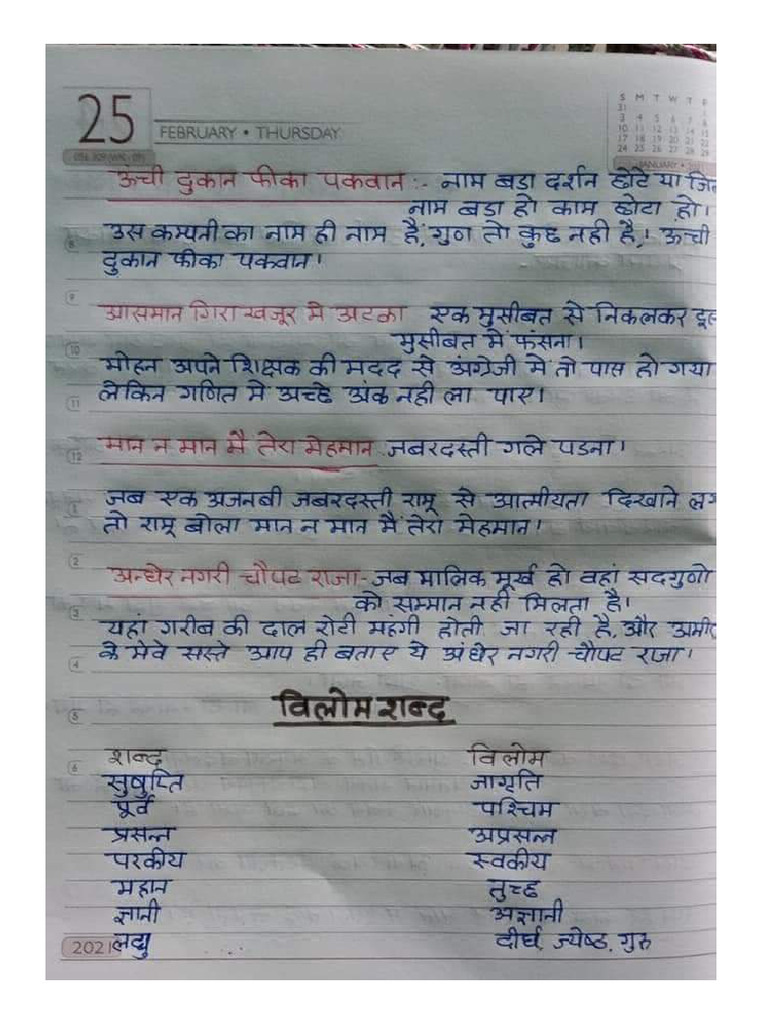 25
FEBRUARY • THURSDAY
S M T W T F
31
3 4 5 6 7 8
10 11 12 13 14 15
17 18 19 20 21 22
24 25 26 27 28 29
JANUARY •
ऊंची दुकान फीका पकवान :- नाम बडा दर्शन छोटे या जि
नाम बडा हो काम छोटा हो।
8
उस कम्पनी का नाम ही नाम है, गुण तो कुछ नही है,। ऊंची
दुकान फीका पकवान।
9
आसमान गिरा खजूर मे अटका एक मुसीबत से निकलकर दू
10
मुसीबत में फंसना।
मोहन अपने शिक्षक की मदद से अंग्रेजी में तो पास हो गया
11
लेकिन गणित मे अच्छे अंक नही ला पाए।
12
मान न मान मै तेरा मेहमान जबरदस्ती गले पडना।
1
जब एक अजनबी जबरदस्ती रामू से आत्मीयता दिखाने ल
तो रामू बोला मान न मान मैं तेरा मेहमान।
2
अन्धेर नगरी चौपट राजा- जब मालिक मूर्ख हो वहां सदगुणो
को सम्मान नही मिलता है।
3
यहां गरीब की दाल रोटी महंगी होती जा रही है, और अमी
4
के मेवे सस्ते आप ही बताए ये अंधेर नगरी चौपट राजा।
5
विलोम शब्द
6
शब्द विलोम
सुषुप्ति जागृति
पूर्व पश्चिम
प्रसन्न अप्रसन्न
परकीय स्वकीय
महान तुच्छ
ज्ञानी अज्ञानी
2021 लघु दीर्घ, ज्येष्ठ, गुरु